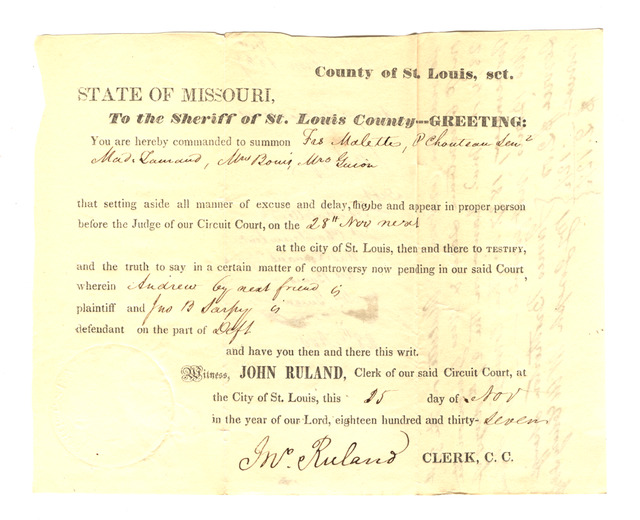 County of St. Louis, sct.
STATE OF MISSOURI,
To the Sheriff of St. Louis County---GREETING:
You are hereby commanded to summon Frs Malette, P Chouteau Senr
Mad. , Mrs Bouis, Mrs Guion
that setting aside all manner of excuse and delay, they be and appear in proper person
before the Judge of our Circuit Court, on the 28th Nov next
at the city of St. Louis, then and there to TESTIFY,
and the truth to say in a certain matter of controversy now pending in our said Court,
wherein Andrew by next friend is
plaintiff and Jno B Sarpy is
defendant on the part of Deft
and have you then and there this writ.
Witness, JOHN RULAND, Clerk of our said Circuit Court, at
the City of St. Louis, this 25 day of Nov
in the year of our Lord, eighteen hundred and thirty-seven
Jno. Ruland CLERK, C. C.